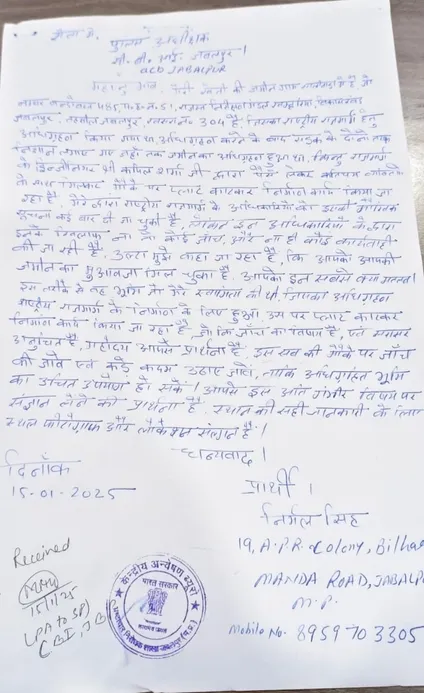 सेवा में,
पुलिस अधीक्षक
सी. बी. आई. जबलपुर।
ACB JABALPUR
महोदय जी, मेरे खेती की जमीन ग्राम में है, जो
नम्बर 485, प.ह.न. 51, राजस्व निरीक्षक मंडल
जबलपुर, तहसील जबलपुर, खसरा नं० 304 है, जिसका राष्ट्रीय राजमार्ग हेतु
अधिग्रहण किया गया था, अधिग्रहण करने के बाद सड़क के दोनो तरफ
निशान लगाए गए जहाँ तक जमीन का अधिग्रहण हुआ था, किन्तु राजमार्ग
के श्री कपिल शर्मा जी द्वारा पैसे लेकर
के साथ मिलकर मौके पर प्लाट काटकर निर्माण कार्य किया जा
रहा है, मेरे द्वारा राष्ट्रीय राजमार्ग के अधिकारियों को इसकी
सूचना कई बार दी जा चुकी है, लेकिन इन अधिकारियों के द्वारा
इनके खिलाफ ना तो कोई जाँच, और ना ही कोई कार्यवाही
की जा रही है, उल्टा मुझे कहा जा रहा है, कि आपको आपकी
जमीन का मुआवजा मिल चुका है, आपको इन सबसे क्या मतलब।
इस तरीके से वह भूमि जो मेरे स्वामित्व की थी जिसका अधिग्रहण
राष्ट्रीय राजमार्ग के निर्माण के लिए हुआ उस पर प्लाट काटकर
निर्माण कार्य किया जा रहा है, जो कि जाँच का विषय है, एवं सरासर
अनुचित है, महोदय आपसे प्रार्थना है, इस सब की मौके पर जाँच
की जावे एवं कड़े कदम उठाए जाये, ताकि अधिग्रहित भूमि
का उचित उपयोग हो सके। आपसे इस अति गंभीर विषय पर
संज्ञान लेने की प्रार्थना है, स्थान की सही जानकारी के लिए
स्थल फोटोग्राफ और लोकेशन संलग्न है।
धन्यवाद।
दिनाँक
15-01-2025
प्रार्थी।
निर्मल सिंह
19, A.P.R. Colony, Bilha
MANDA ROAD, JABALP
M.P.
Mobile No. 8959703305
Received
15/1/25
(PA to SP)
CBI, JB
केन्द्रीय अन्वेषण ब्यूरो
भारत सरकार